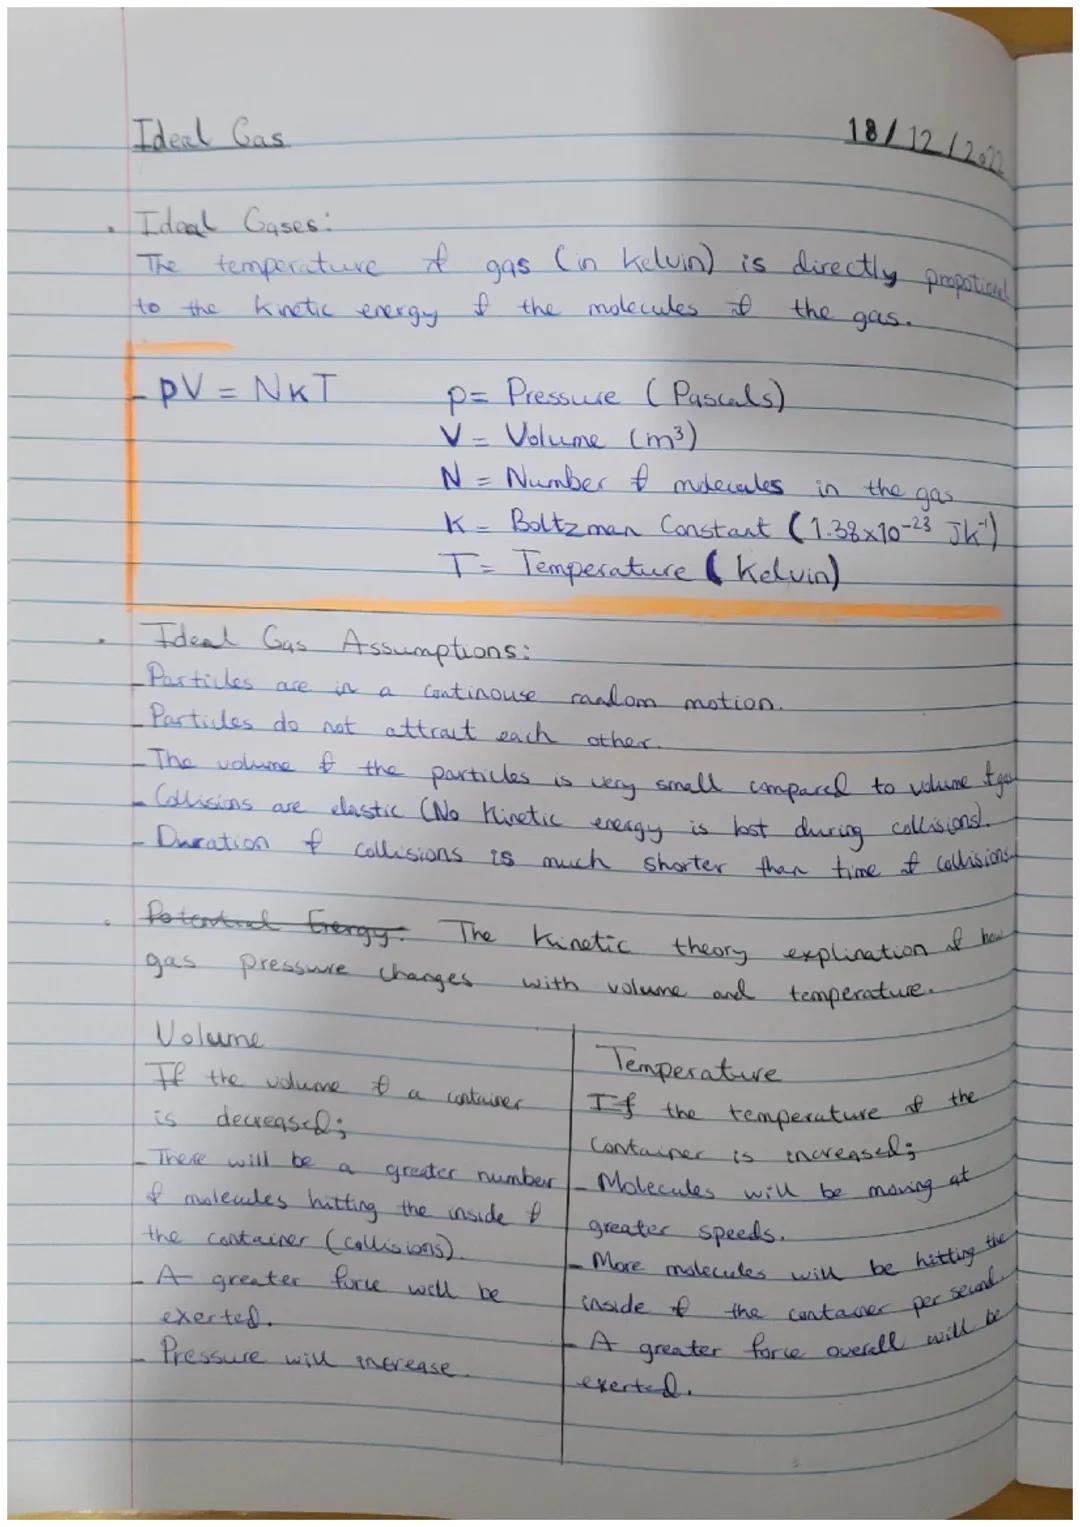 Ideal Gas
18/12/2022
Ideal Gases:
The temperature of gas (in Kelvin) is directly propotional
to the Kinetic energy of the molecules of the gas.
- PV = NKT
P= Pressure (Pascals)
V= Volume (m³)
N = Number of molecules in the gas
K = Boltzman Constant (1.38x10-²³ Jk⁻¹)
T= Temperature (Kelvin)
Ideal Gas Assumptions:
- Particles are in a continouse random motion.
- Particles do not attract each other.
- The volume of the particles is very small compared to volume of gas
- Collisions are elastic (No Kinetic energy is lost during collisions).
- Duration of collisions is much shorter than time of collisions.
Potential Energy: The Kinetic theory explination of how
gas pressure changes with volume and temperature.
Volume
If the volume of a container
is decreased;
- There will be a greater number
of molecules hitting the inside of
the container (collisions).
- A greater force will be
exerted.
- Pressure will increase.
Temperature
If the temperature of the
Container is increased;
- Molecules will be moving at
greater speeds.
- More molecules will be hitting the
inside of the container per second.
- A greater force overall will be
exerted.